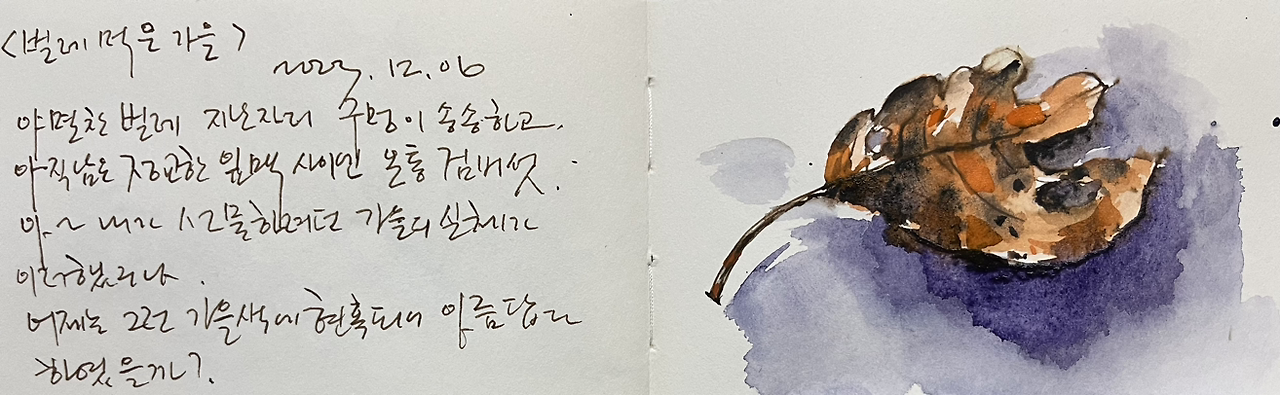 <벌레 먹은 가을>
2023. 12. 06
야멸찬 벌레 지난자리 구멍이 송송하고.
아직남은 정교한 잎맥 사이엔 온통 검버섯.
아~ 내가 선물하려던 가을의 실체가
이러했더냐.
어제는 그런 가을색에 현혹되어 아름답다
하였을까?